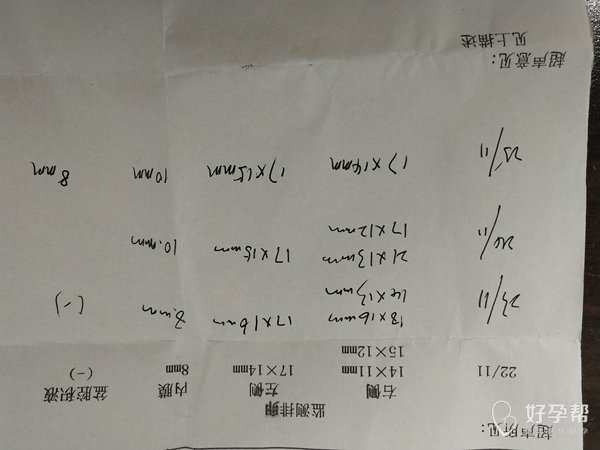 超声所见:
监测排卵
右侧 左侧 内膜 盆腔积液
22/11 14×11mm 17×14mm 8mm (-)
15×12mm
23/11 18×16mm 17×16mm 8.mm (-)
14×13mm
21×13mm 17×15mm 10.mm
17×12mm
25/11 17×14mm 17×15mm 10mm 8mm
超声意见:
见上描述
好孕帮